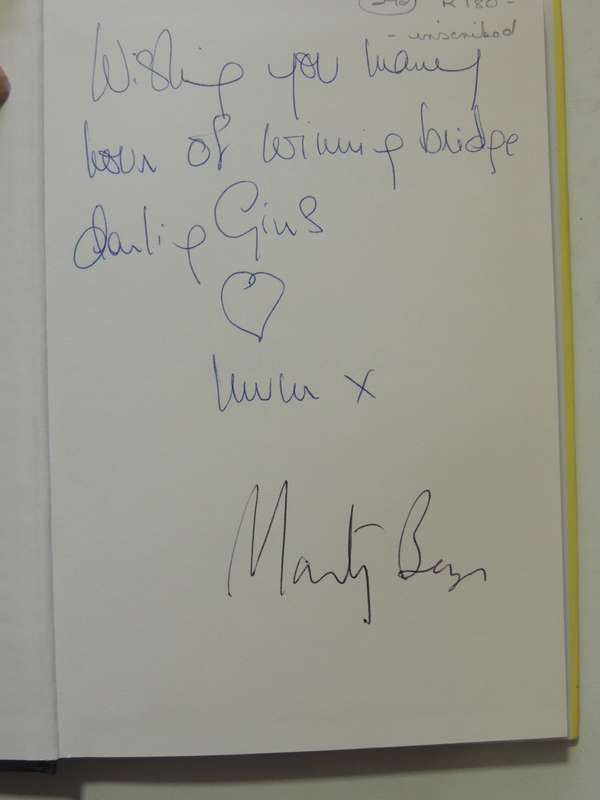 R180-
- inscribed
Wishing you many
hours of winning bridge
darling Gins
x
Marty Bergen